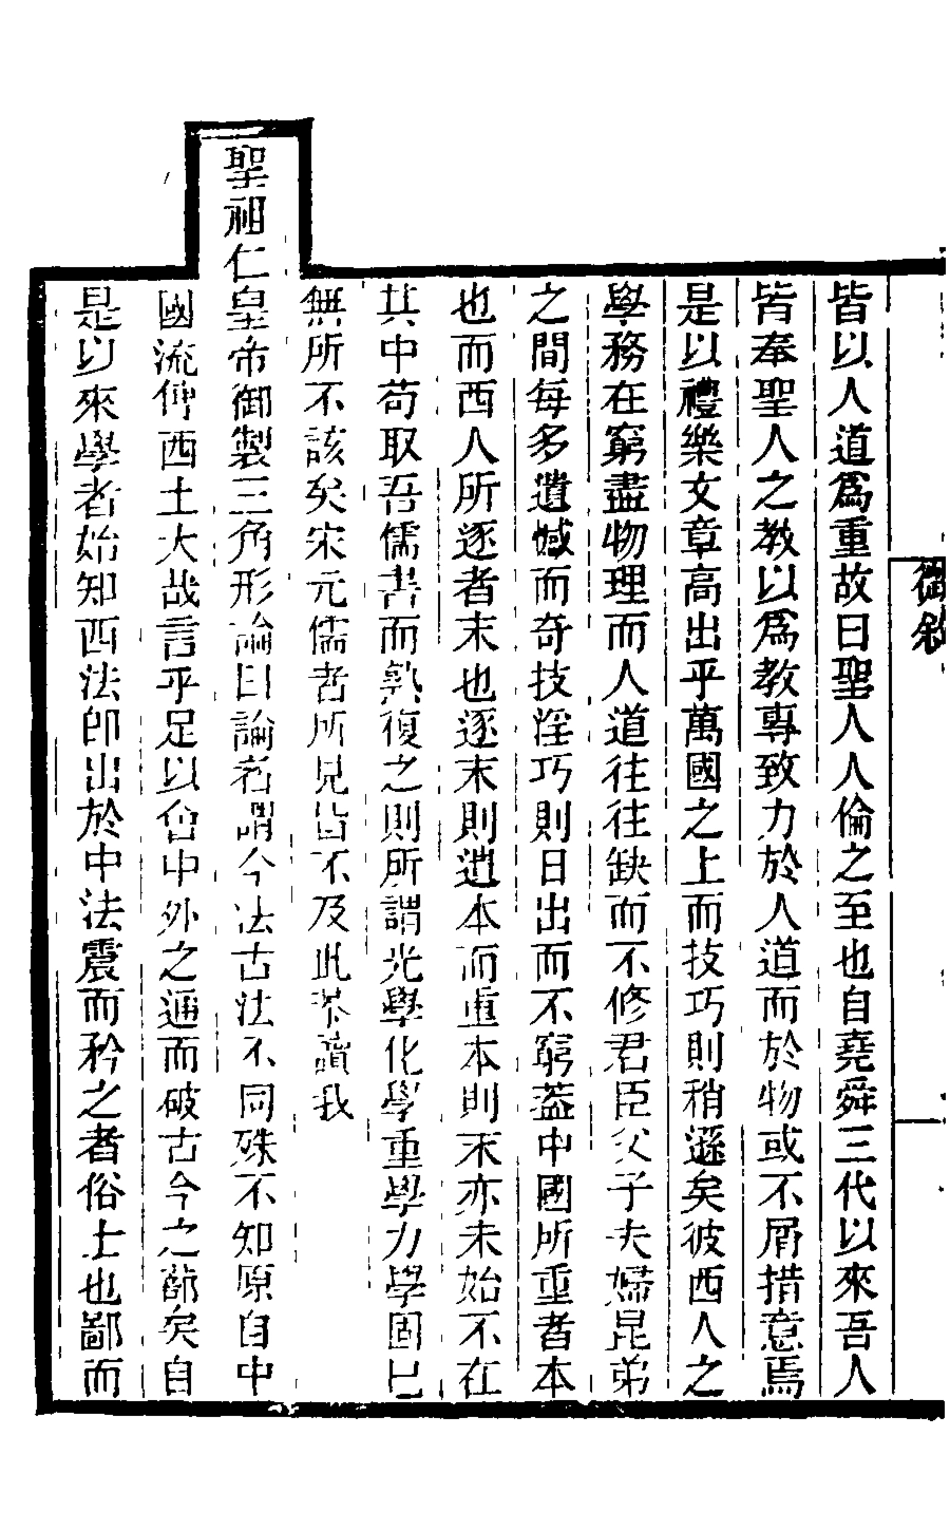 皆以人道爲重故曰聖人人倫之至也自堯舜三代以來吾人
皆奉聖人之教以爲教專致力於人道而於物或不屑措意焉
是以禮樂文章高出乎萬國之上而技巧則稍遜矣彼西人之
學務在窮盡物理而人道往往缺而不修君臣父子夫婦昆弟
之間每多遺憾而奇技淫巧則日出而不窮蓋中國所重者本
也而西人所逐者末也逐末則遺本而重本則末亦未始不在
其中苟取吾儒書而熟復之則所謂光學化學重學力學固已
無所不該矣宋元儒者所見皆不及此葢讀我
聖祖仁皇帝御製三角形論曰論者謂今法古法不同殊不知原自中
國流傳西土大哉言乎足以會中外之通而破古今之蔀矣自
是以來學者始知西法卽出於中法震而矜之者俗士也鄙而